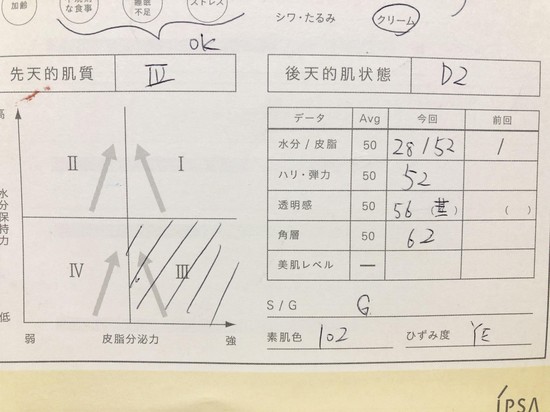 加齢
な食事
睡眠
不足
ストレス
シワ・たるみ
クリーム
OK
先天的肌質 Ⅳ
後天的肌状態 D2
高
水分保持力
低
Ⅱ Ⅰ
Ⅳ Ⅲ
弱 皮脂分泌力 強
データ Avg 今回 前回
水分 / 皮脂 50 28 / 52 /
ハリ・弾力 50 52
透明感 50 56 (黄) ( )
角層 50 62
美肌レベル —
S / G G
素肌色 102 ひずみ度 YE
IPSA